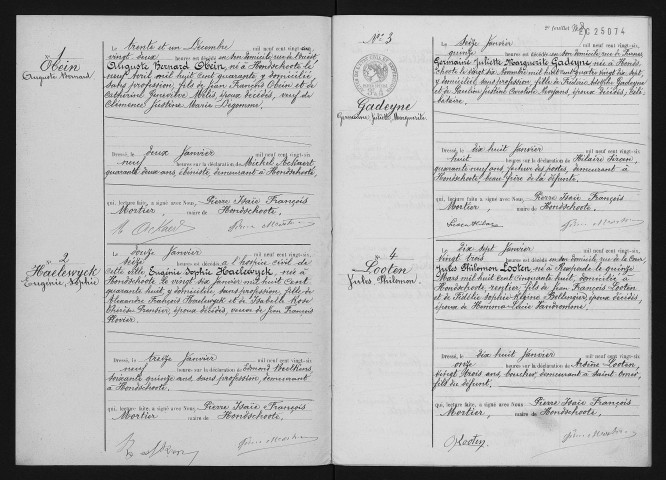 N° 1
Obein
Auguste Bernard
Le trente et un Décembre mil neuf cent vingt-cinq
vingt deux heures est décédé en son domicile rue de l'Ouest,
Auguste Bernard Obein, né à Hondschoote le
neuf Avril mil huit cent quarante y domicilié,
sans profession, fils de Jean François Obein et de
Catherine Geneviève, époux décédés, veuf de
Clémence Justine Marie Degomme.
Dressé, le deux Janvier mil neuf cent vingt-six,
neuf heures sur la déclaration de Michel
quarante deux ans, ébéniste, demeurant à Hondschoote,
qui, lecture faite, a signé avec Nous, Pierre Isaïe François
Mortier, maire de Hondschoote.
N° 2
Haelewyck
Eugénie, Sophie
Le douze Janvier mil neuf cent vingt-six,
seize heures est décédée à l'hospice civil de
cette ville Eugénie Sophie Haelewyck, née à
Hondschoote le vingt six janvier mil huit cent
quarante huit, y domiciliée, sans profession, fille de
Alexandre François Haelewyck et de Isabelle Rose
Thérèse, époux décédés, veuve de Jean François
Dressé, le treize Janvier mil neuf cent vingt-six,
neuf heures sur la déclaration de Edmond
soixante quinze ans, sans profession, demeurant
à Hondschoote,
qui, lecture faite, a signé avec Nous, Pierre Isaïe François
Mortier, maire de Hondschoote.
2e feuillet
EC25074
N° 3
Gadeyne
Germaine Juliette Marguerite
Le seize Janvier mil neuf cent vingt-six,
quinze heures est décédée en son domicile rue de
Germaine Juliette Marguerite Gadeyne née à Honds-
choote le vingt six Novembre mil huit cent quatre vingt dix sept,
y domiciliée, sans profession, fille de Gadeyne
et de époux décédés, céli-
bataire.
Dressé, le dix huit Janvier mil neuf cent vingt-six,
huit heures sur la déclaration de Hilaire
quarante neuf ans, facteur des postes, demeurant à
Hondschoote, beau-frère de la défunte,
qui, lecture faite, a signé avec Nous, Pierre Isaïe François
Mortier, maire de Hondschoote.
4
Looten
Jules Philémon
Le dix sept Janvier mil neuf cent vingt-six,
vingt trois heures est décédé en son domicile rue de la Cour,
Jules Philémon Looten, né à Rexpoede le quinze
Mars mil huit cent cinquante huit, domicilié à
Hondschoote, rentier, fils de Jean François Looten
et de Sophie Régine époux décédés,
époux de Louise
Dressé, le dix huit Janvier mil neuf cent vingt-six,
onze heures sur la déclaration de Arsène Looten,
vingt trois ans, boucher, demeurant à Saint Omer,
fils du défunt,
qui, lecture faite, a signé avec Nous, Pierre Isaïe François
Mortier, maire de Hondschoote.